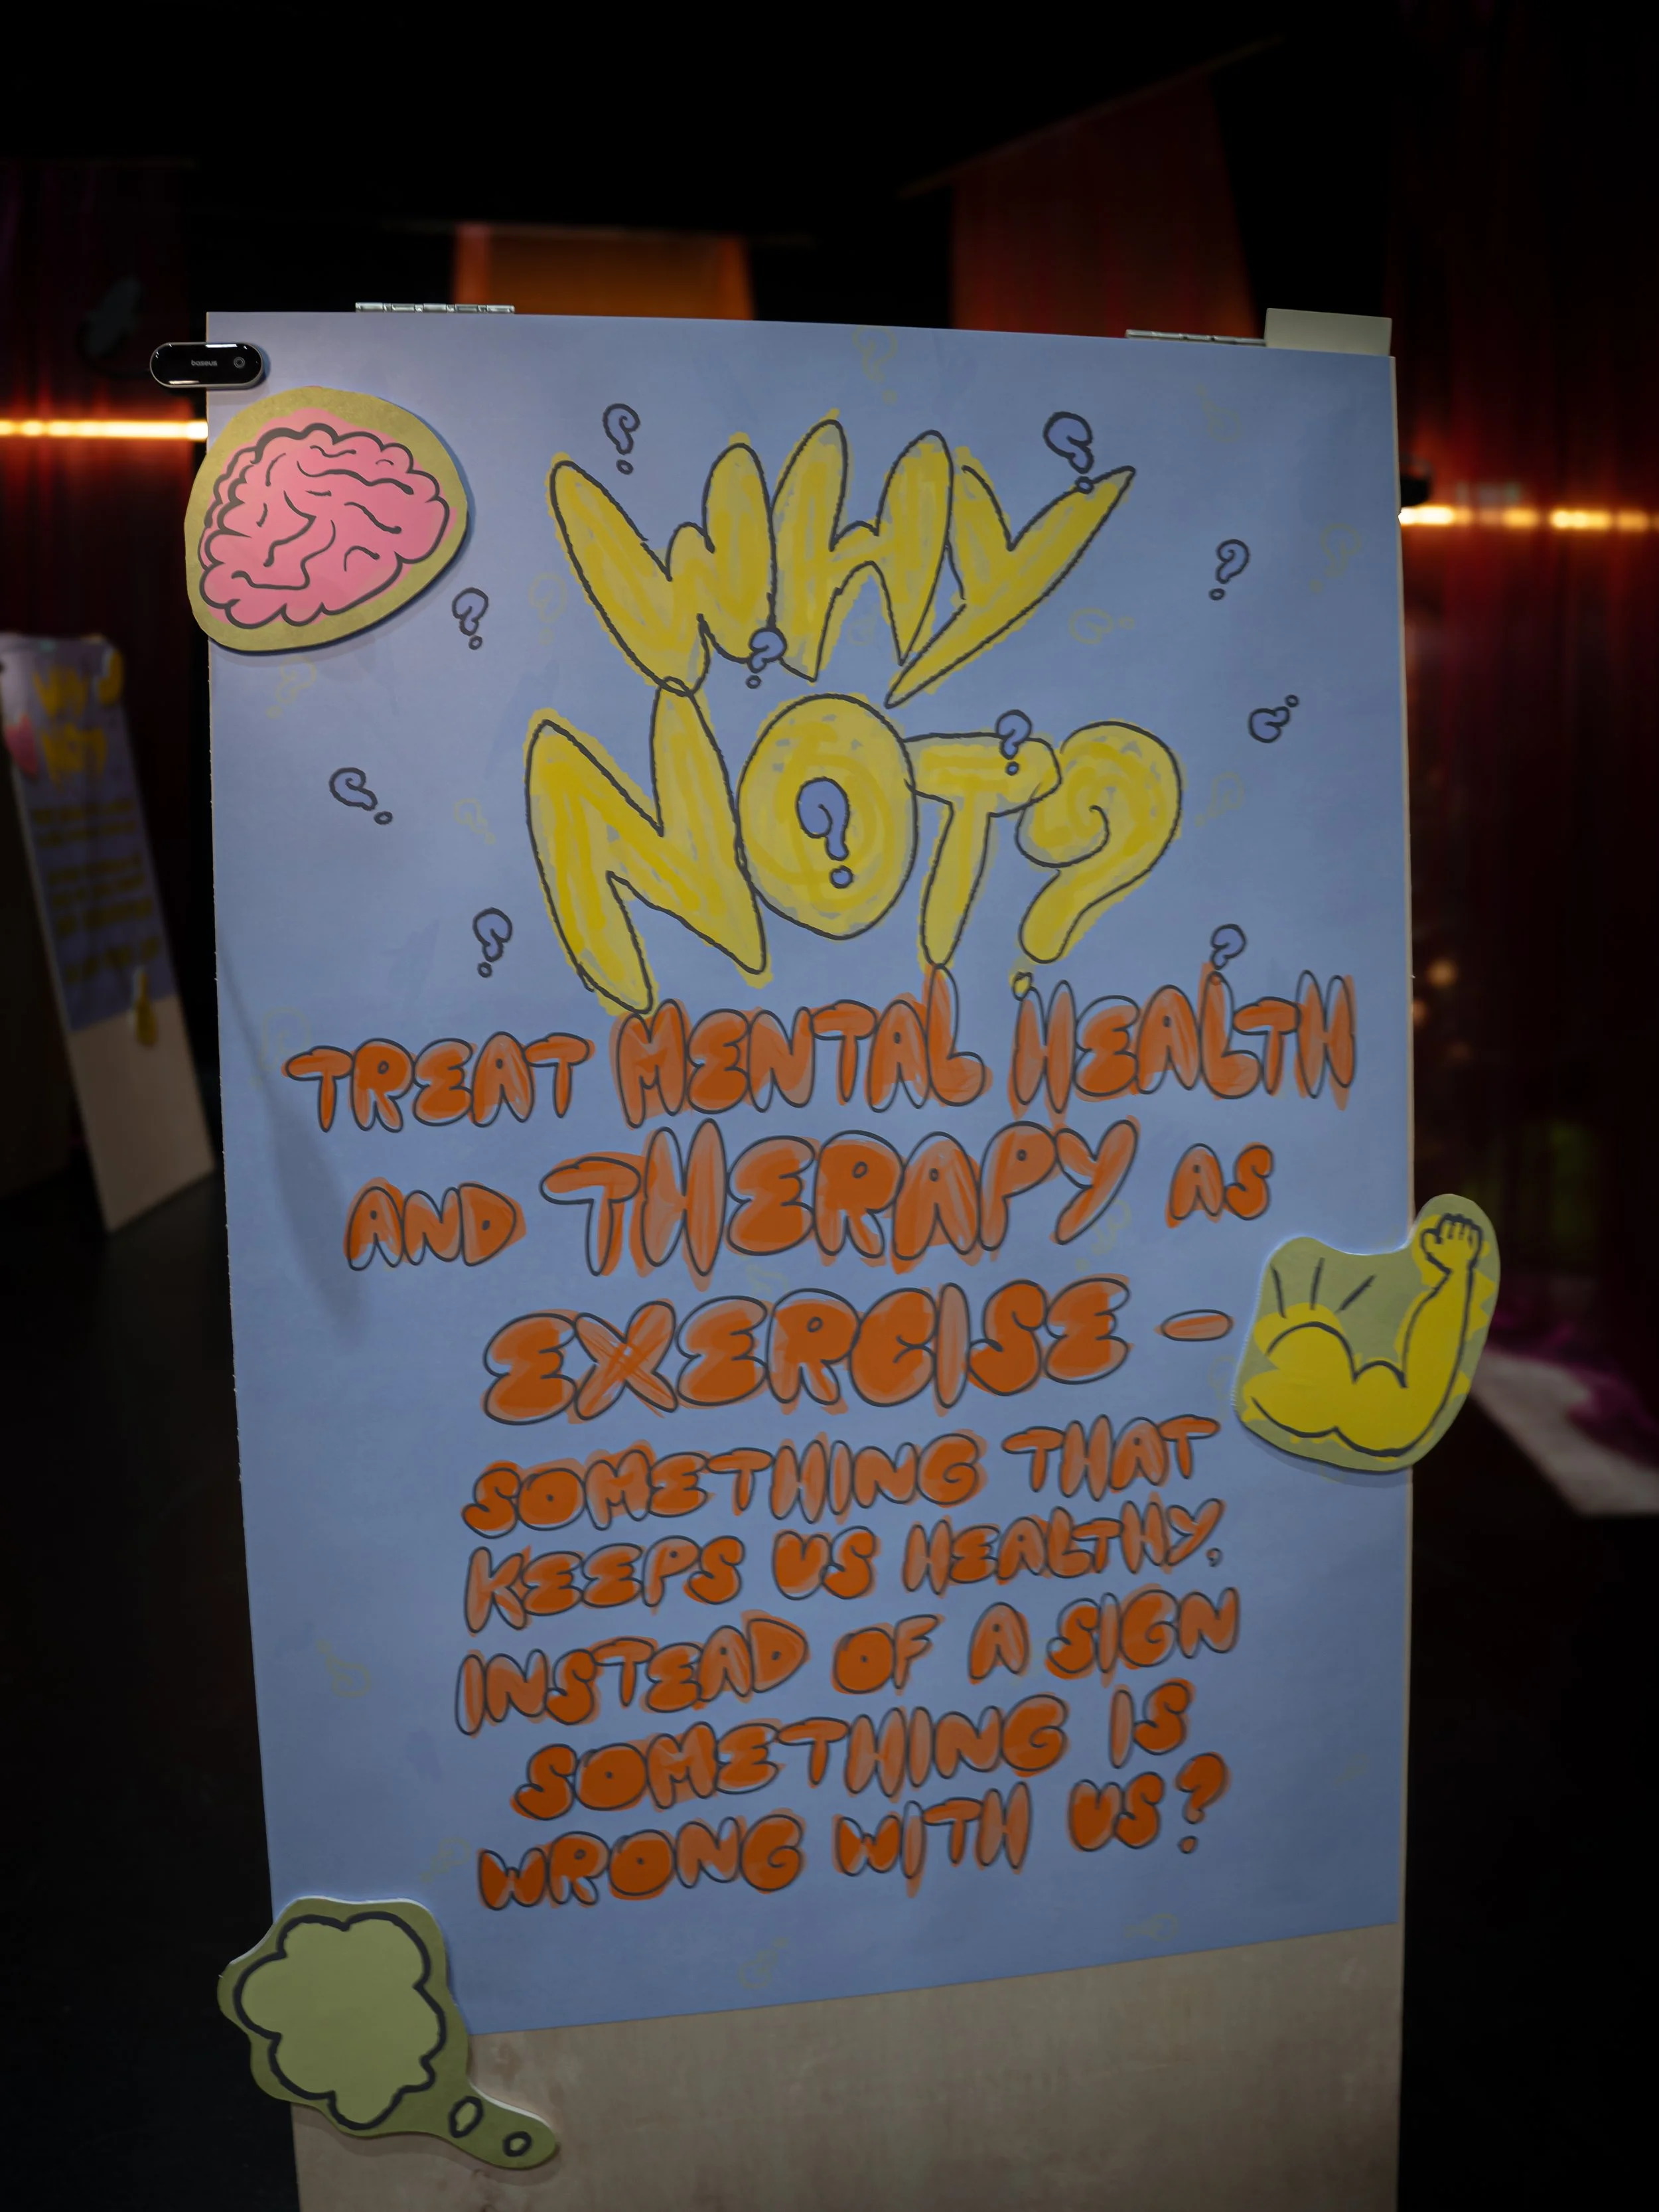 baseus
WHY
NOT?
TREAT MENTAL HEALTH
AND THERAPY AS
EXERCISE -
SOMETHING THAT
KEEPS US HEALTHY,
INSTEAD OF A SIGN
SOMETHING IS
WRONG WITH US?
WHY
NOT?